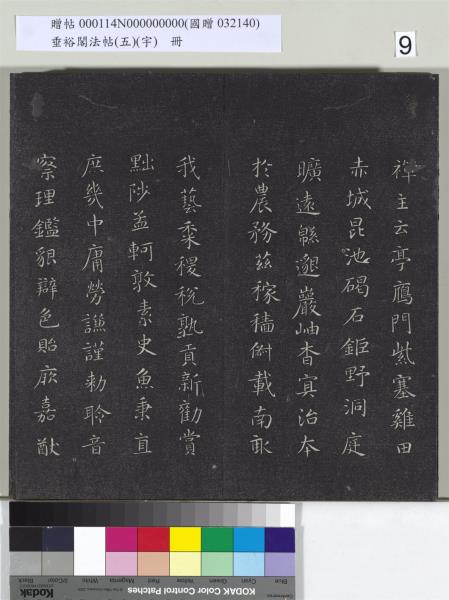 贈帖 000114N000000000(國贈 032140)
垂裕閣法帖(五)(宇) 冊
9
禪主云亭鴈門紫塞雞田
赤城昆池碣石鉅野洞庭
曠遠緜邈巖岫杳冥治本
於農務茲稼穡俶載南畝
我藝黍稷稅熟貢新勸賞
黜陟孟軻敦素史魚秉直
庶幾中庸勞謙謹勑聆音
察理鑑貌辯色貽厥嘉猷
Blue Cyan Green Yellow Red Magenta White 3/Color Black
Kodak
KODAK Color Control Patches